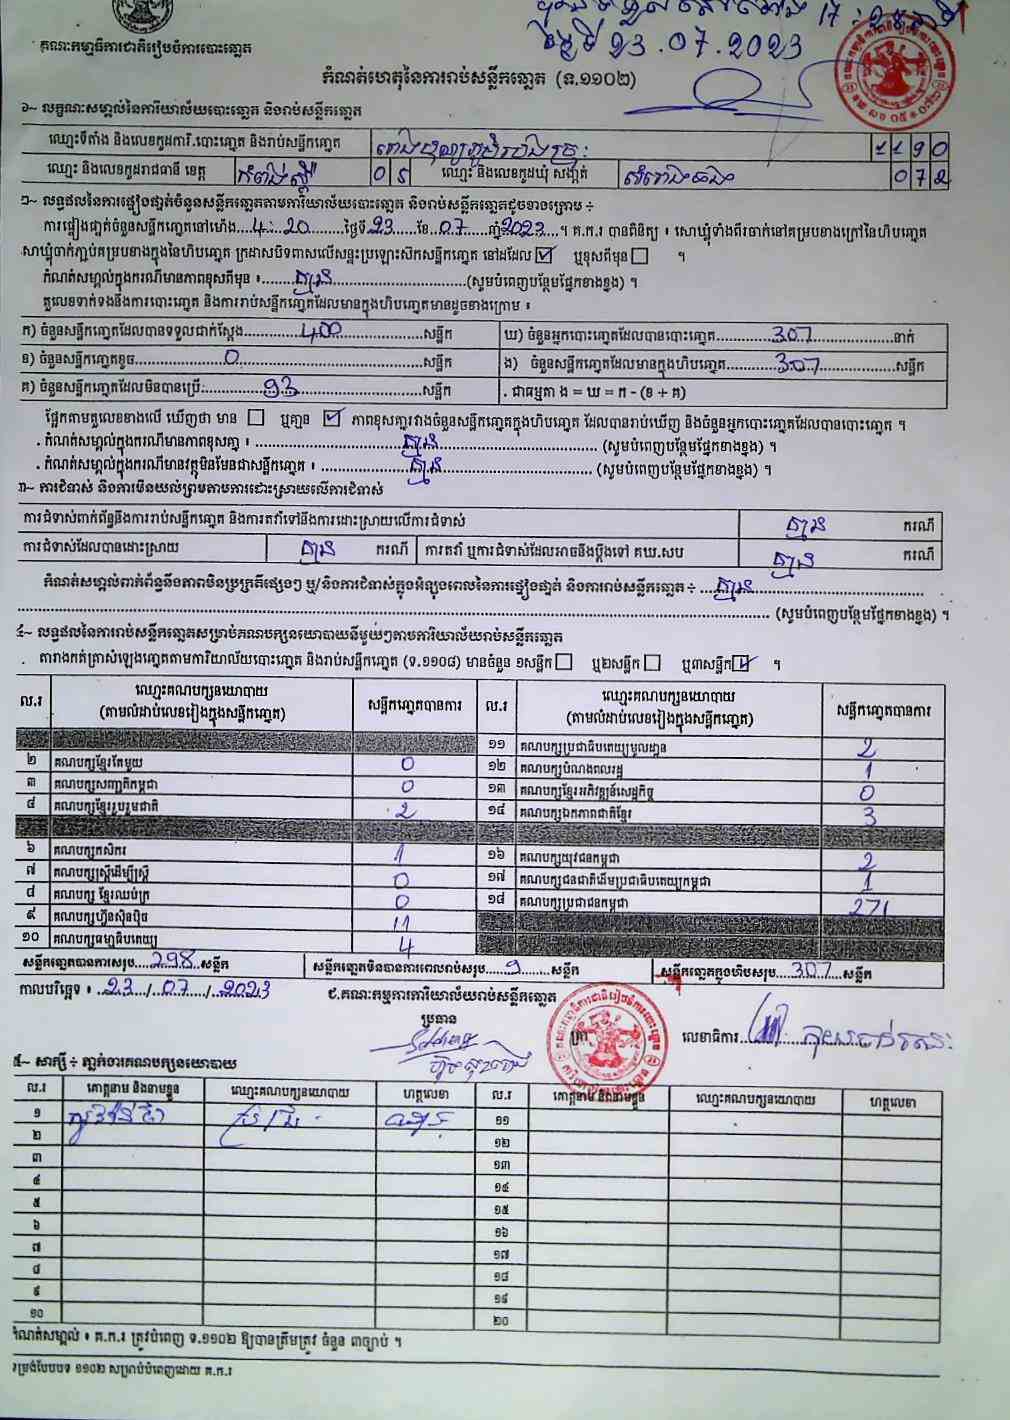 17:
គណៈកម្មាធិការជាតិរៀបចំការបោះឆ្នោត
ថ្ងៃទី 23.07.2023
កំណត់ហេតុនៃការរាប់សន្លឹកឆ្នោត (ទ.១១០២)
១~ លក្ខណៈសម្គាល់នៃការិយាល័យបោះឆ្នោត និងរាប់សន្លឹកឆ្នោត
ឈ្មោះទីតាំង និងលេខកូដការិ.បោះឆ្នោត និងរាប់សន្លឹកឆ្នោត 1190
ឈ្មោះ និងលេខកូដរាជធានី ខេត្ត កំពង់ស្ពឺ 05 ឈ្មោះ និងលេខកូដឃុំ សង្កាត់ 072
២~ លទ្ធផលនៃការផ្ទៀងផ្ទាត់ចំនួនសន្លឹកឆ្នោតតាមការិយាល័យបោះឆ្នោត និងរាប់សន្លឹកឆ្នោតដូចខាងក្រោម ÷
ការផ្ទៀងផ្ទាត់ចំនួនសន្លឹកឆ្នោតនៅម៉ោង 4:20 ថ្ងៃទី 23 ខែ 07 ឆ្នាំ 2023 ។ គ.ក.រ បានពិនិត្យ ៖ សោឃ្លុំទាំងពីរចាក់នៅគម្របខាងក្រៅនៃហិបឆ្នោត
សោឃ្លុំចាក់ភ្ជាប់គម្របខាងក្នុងនៃហិបឆ្នោត ក្រដាសបិទពាសលើសន្ទះប្រឡោះសឹកសន្លឹកឆ្នោត នៅដដែល ☑ ឬខុសពីមុន ☐ ។
កំណត់សម្គាល់ក្នុងករណីមានភាពខុសពីមុន ៖ គ្មាន (សូមបំពេញបន្ថែមផ្នែកខាងខ្នង) ។
តួលេខទាក់ទងនឹងការបោះឆ្នោត និងការរាប់សន្លឹកឆ្នោតដែលមានក្នុងហិបឆ្នោតមានដូចខាងក្រោម ៖
ក) ចំនួនសន្លឹកឆ្នោតដែលបានទទួលជាក់ស្តែង 400 សន្លឹក ឃ) ចំនួនអ្នកបោះឆ្នោតដែលបានបោះឆ្នោត 307 នាក់
ខ) ចំនួនសន្លឹកឆ្នោតខូច 0 សន្លឹក ង) ចំនួនសន្លឹកឆ្នោតដែលមានក្នុងហិបឆ្នោត 307 សន្លឹក
គ) ចំនួនសន្លឹកឆ្នោតដែលមិនបានប្រើ 93 សន្លឹក . ជាធម្មតា ង = ឃ = ក - (ខ + គ)
ផ្អែកតាមតួលេខខាងលើ ឃើញថា មាន ☐ ឬគ្មាន ☑ ភាពខុសគ្នារវាងចំនួនសន្លឹកឆ្នោតក្នុងហិបឆ្នោត ដែលបានរាប់ឃើញ និងចំនួនអ្នកបោះឆ្នោតដែលបានបោះឆ្នោត ។
. កំណត់សម្គាល់ក្នុងករណីមានភាពខុសគ្នា ៖ គ្មាន (សូមបំពេញបន្ថែមផ្នែកខាងខ្នង) ។
. កំណត់សម្គាល់ក្នុងករណីមានវត្ថុមិនមែនជាសន្លឹកឆ្នោត ៖ គ្មាន (សូមបំពេញបន្ថែមផ្នែកខាងខ្នង) ។
៣~ ការជំទាស់ និងការមិនយល់ព្រមតាមការដោះស្រាយលើការជំទាស់
ការជំទាស់ពាក់ព័ន្ធនឹងការរាប់សន្លឹកឆ្នោត និងការតវ៉ាទៅនឹងការដោះស្រាយលើការជំទាស់ គ្មាន ករណី
ការជំទាស់ដែលបានដោះស្រាយ គ្មាន ករណី ការតវ៉ា ឬការជំទាស់ដែលអាចនឹងប្តឹងទៅ គឃ.សប គ្មាន ករណី
កំណត់សម្គាល់ពាក់ព័ន្ធនឹងភាពមិនប្រក្រតីផ្សេងៗ ឬ/និងការជំទាស់ក្នុងអំឡុងពេលនៃការផ្ទៀងផ្ទាត់ និងការរាប់សន្លឹកឆ្នោត ÷ គ្មាន
(សូមបំពេញបន្ថែមផ្នែកខាងខ្នង) ។
៤~ លទ្ធផលនៃការរាប់សន្លឹកឆ្នោតសម្រាប់គណបក្សនយោបាយនីមួយៗតាមការិយាល័យរាប់សន្លឹកឆ្នោត
. តារាងកត់ត្រាសំឡេងឆ្នោតតាមការិយាល័យបោះឆ្នោត និងរាប់សន្លឹកឆ្នោត (ទ.១១០៨) មានចំនួន ១សន្លឹក ☐ ឬ២សន្លឹក ☐ ឬ៣សន្លឹក ☑ ។
ល.រ ឈ្មោះគណបក្សនយោបាយ (តាមលំដាប់លេខរៀងក្នុងសន្លឹកឆ្នោត) សន្លឹកឆ្នោតបានការ ល.រ ឈ្មោះគណបក្សនយោបាយ (តាមលំដាប់លេខរៀងក្នុងសន្លឹកឆ្នោត) សន្លឹកឆ្នោតបានការ
១១ គណបក្សប្រជាធិបតេយ្យមូលដ្ឋាន 2
២ គណបក្សខ្មែរតែមួយ 0 ១២ គណបក្សបំណងពលរដ្ឋ 1
៣ គណបក្សសញ្ជាតិកម្ពុជា 0 ១៣ គណបក្សខ្មែរអភិវឌ្ឍន៍សេដ្ឋកិច្ច 0
៤ គណបក្សខ្មែររួបរួមជាតិ 2 ១៤ គណបក្សឯកភាពជាតិខ្មែរ 3
៦ គណបក្សកសិករ 1 ១៦ គណបក្សយុវជនកម្ពុជា 2
៧ គណបក្សស្ត្រីដើម្បីស្ត្រី 0 ១៧ គណបក្សជនជាតិដើមប្រជាធិបតេយ្យកម្ពុជា 1
៨ គណបក្ស ខ្មែរឈប់ក្រ 0 ១៨ គណបក្សប្រជាជនកម្ពុជា 271
៩ គណបក្សហ្វ៊ុនស៊ិនប៉ិច 11
១០ គណបក្សធម្មាធិបតេយ្យ 4
សន្លឹកឆ្នោតបានការសរុប 298 សន្លឹក សន្លឹកឆ្នោតមិនបានការពេលរាប់សរុប 9 សន្លឹក សន្លឹកឆ្នោតក្នុងហិបសរុប 307 សន្លឹក
កាលបរិច្ឆេទ ៖ 23/07/2023 ជ.គណៈកម្មការការិយាល័យរាប់សន្លឹកឆ្នោត
ប្រធាន លេខាធិការ
៥~ សាក្សី ÷ ភ្នាក់ងារគណបក្សនយោបាយ
ល.រ គោត្តនាម និងនាមខ្លួន ឈ្មោះគណបក្សនយោបាយ ហត្ថលេខា ល.រ គោត្តនាម និងនាមខ្លួន ឈ្មោះគណបក្សនយោបាយ ហត្ថលេខា
១ ១១
២ ១២
៣ ១៣
៤ ១៤
៥ ១៥
៦ ១៦
៧ ១៧
៨ ១៨
៩ ១៩
១០ ២០
កំណត់សម្គាល់ ៖ គ.ក.រ ត្រូវបំពេញ ទ.១១០២ ឱ្យបានត្រឹមត្រូវ ចំនួន ៣ច្បាប់ ។
ទម្រង់បែបបទ ១១០២ សម្រាប់បំពេញដោយ គ.ក.រ